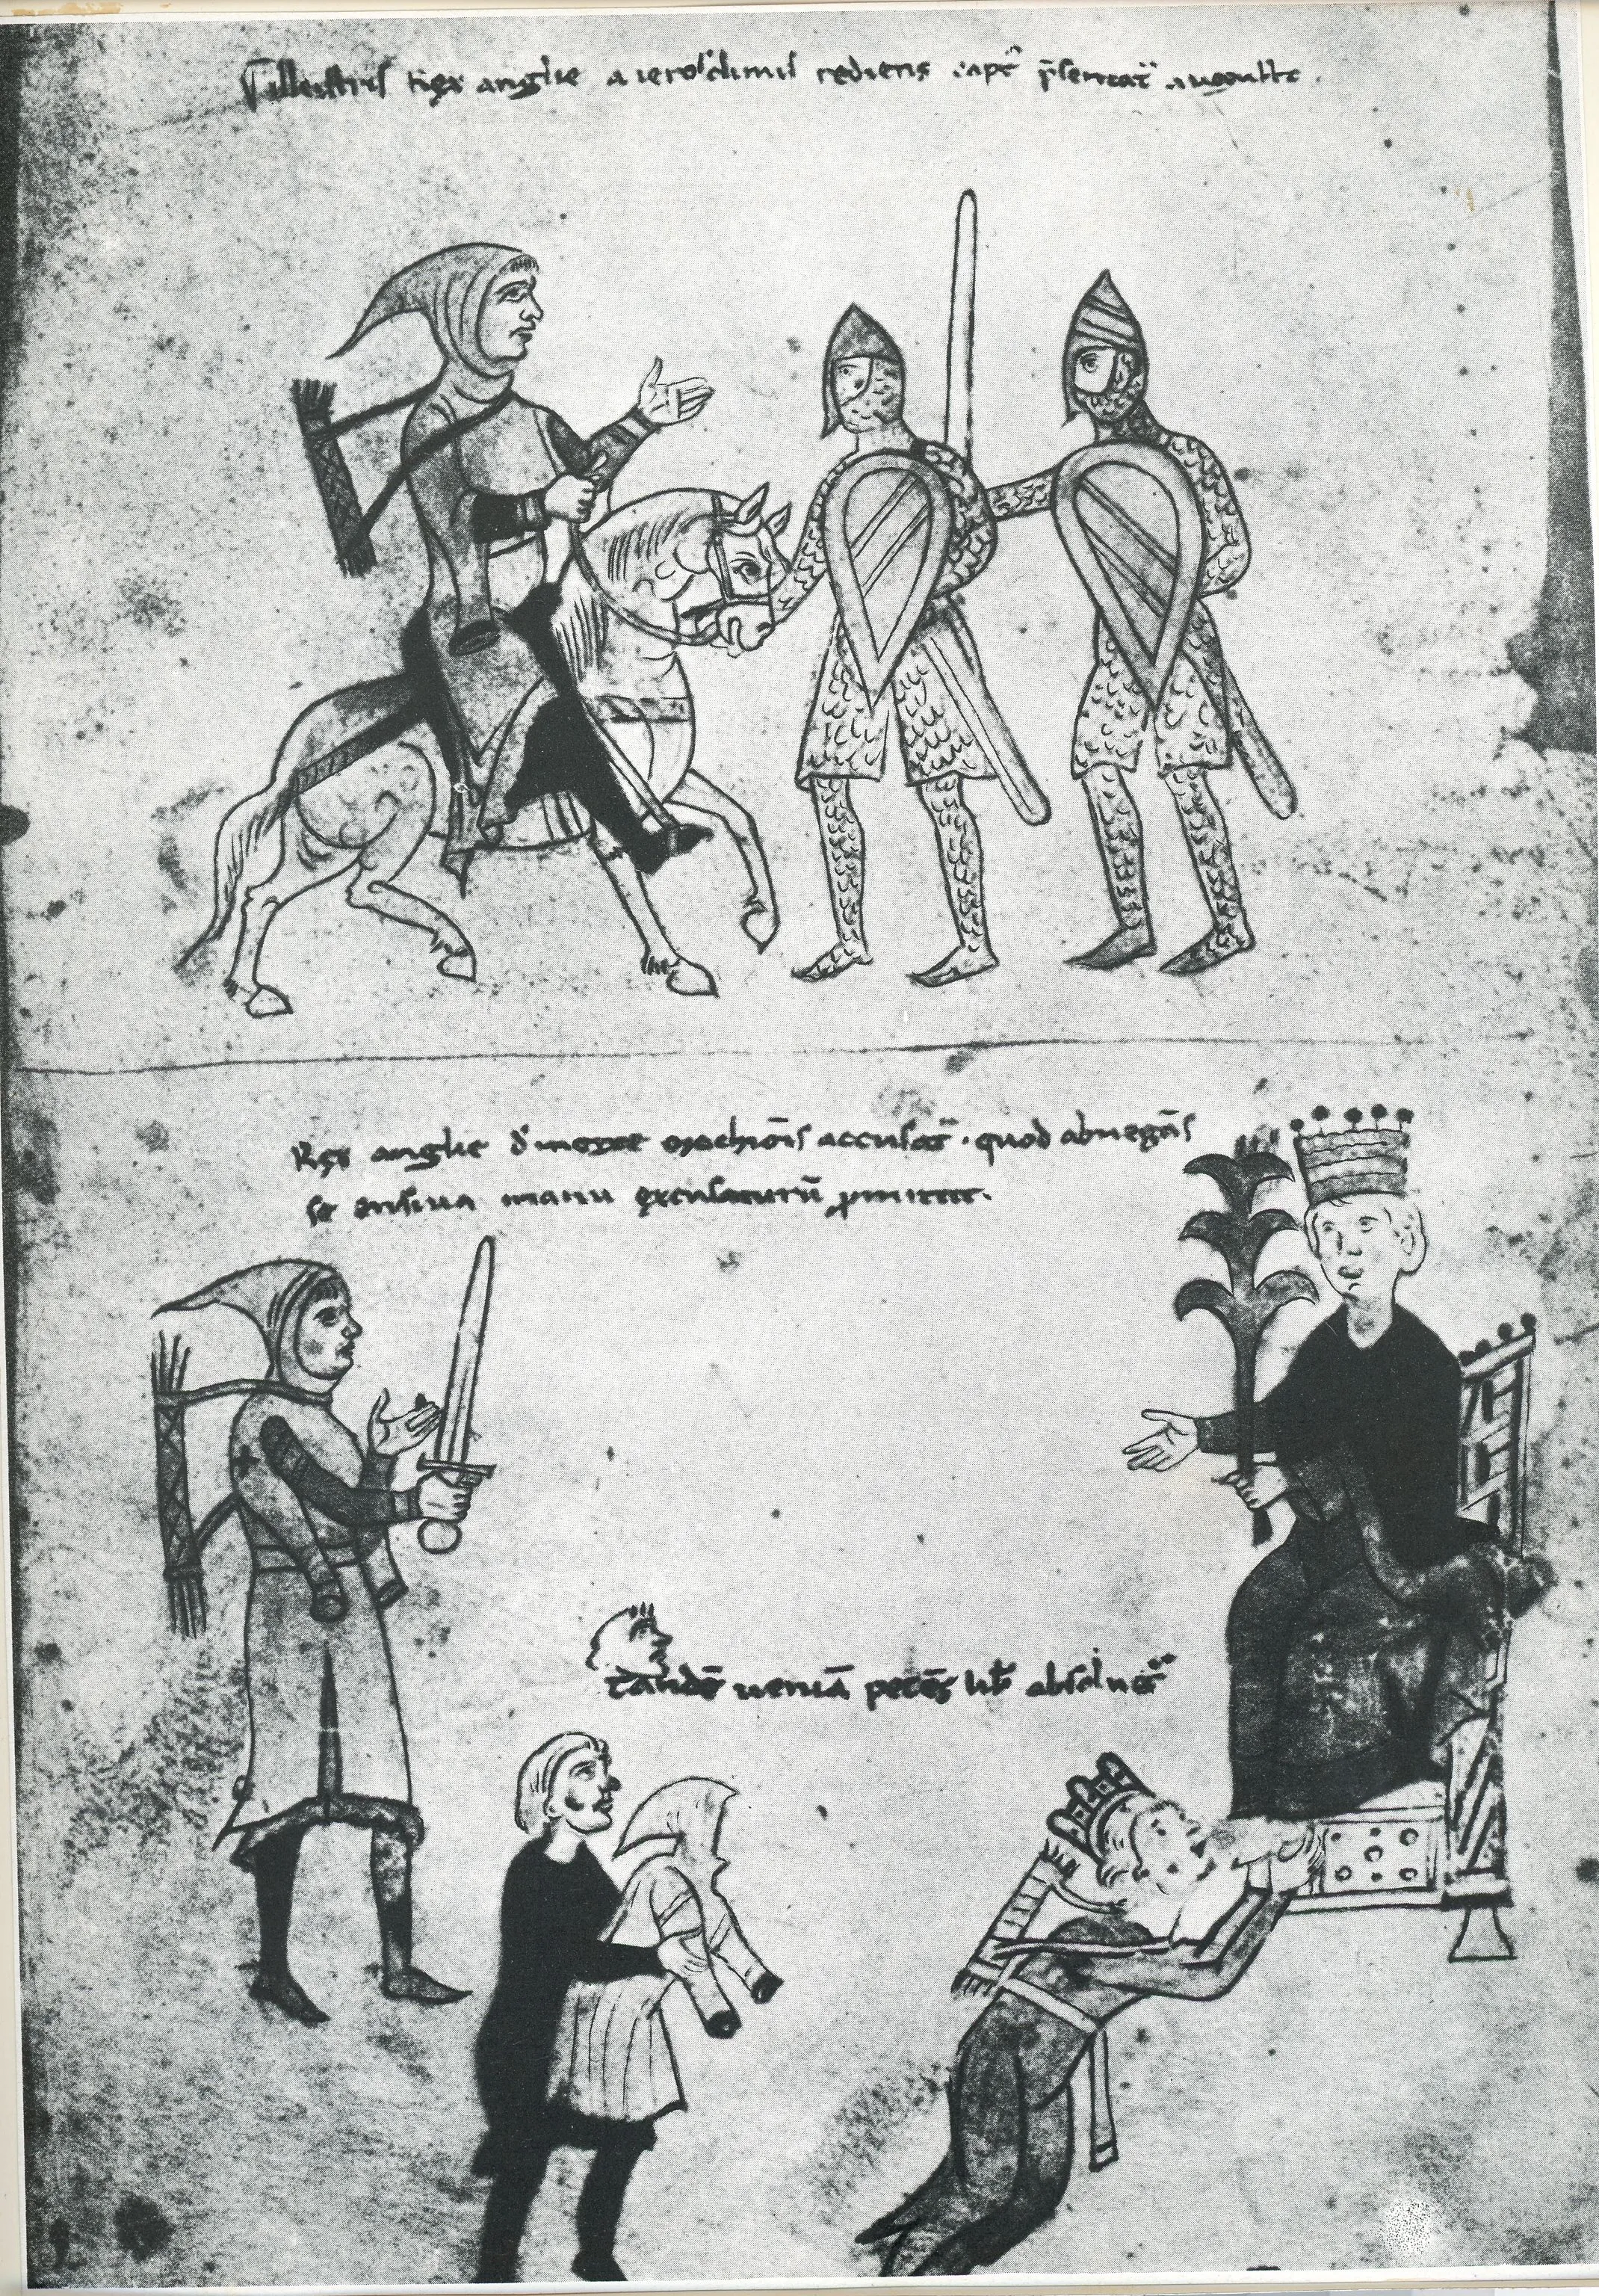 Illustris rex anglie a ierosolimis rediens capt' p̄sentat' augusto.
Rex anglie d' morte marchiōis accusat'. quod abnegās
se ensiua manu excusaturū p̄mittit.
tandē ueniā petēs lib' absoluit'